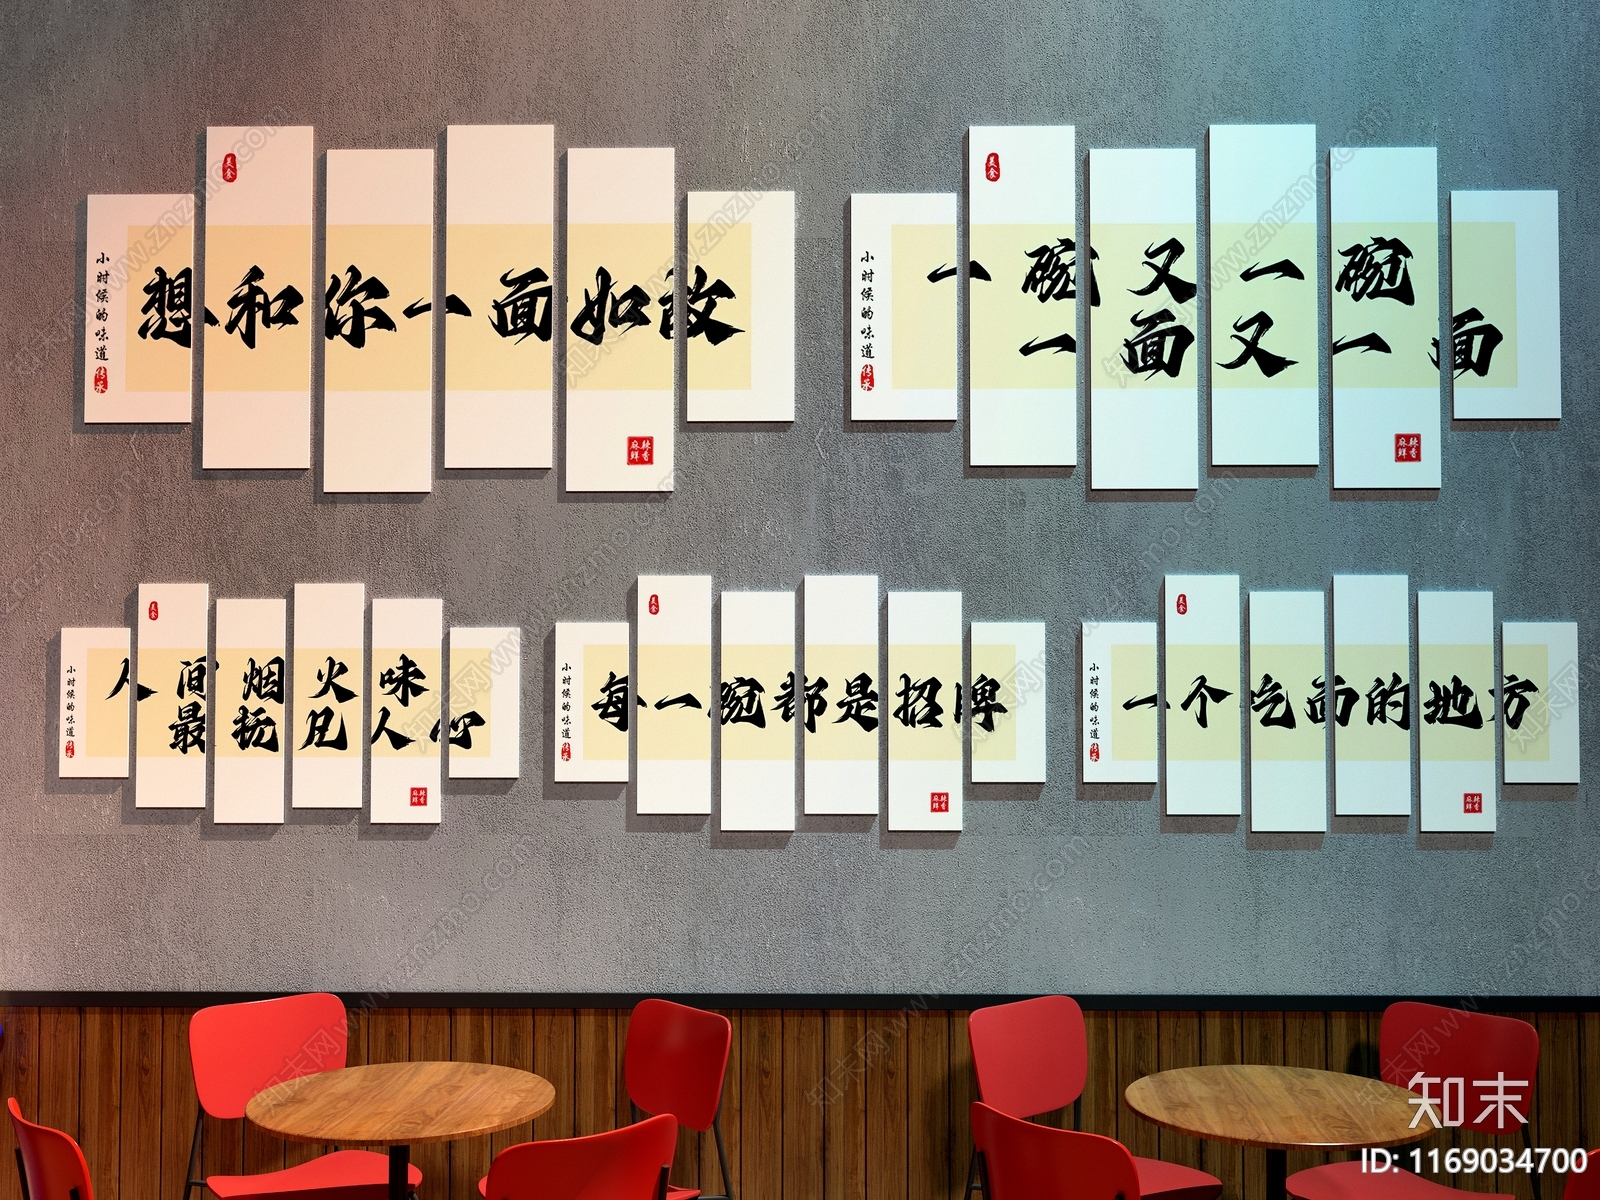 美食
想和你一面如故
小时候的味道
传承
麻辣鲜香
美食
一碗又一碗
一面又一面
小时候的味道
传承
麻辣鲜香
美食
人间烟火味
最抚凡人心
小时候的味道
传承
麻辣鲜香
美食
每一碗都是招牌
小时候的味道
传承
麻辣鲜香
美食
一个吃面的地方
小时候的味道
传承
麻辣鲜香
知末
ID: 1169034700
知末网www.znzmo.com